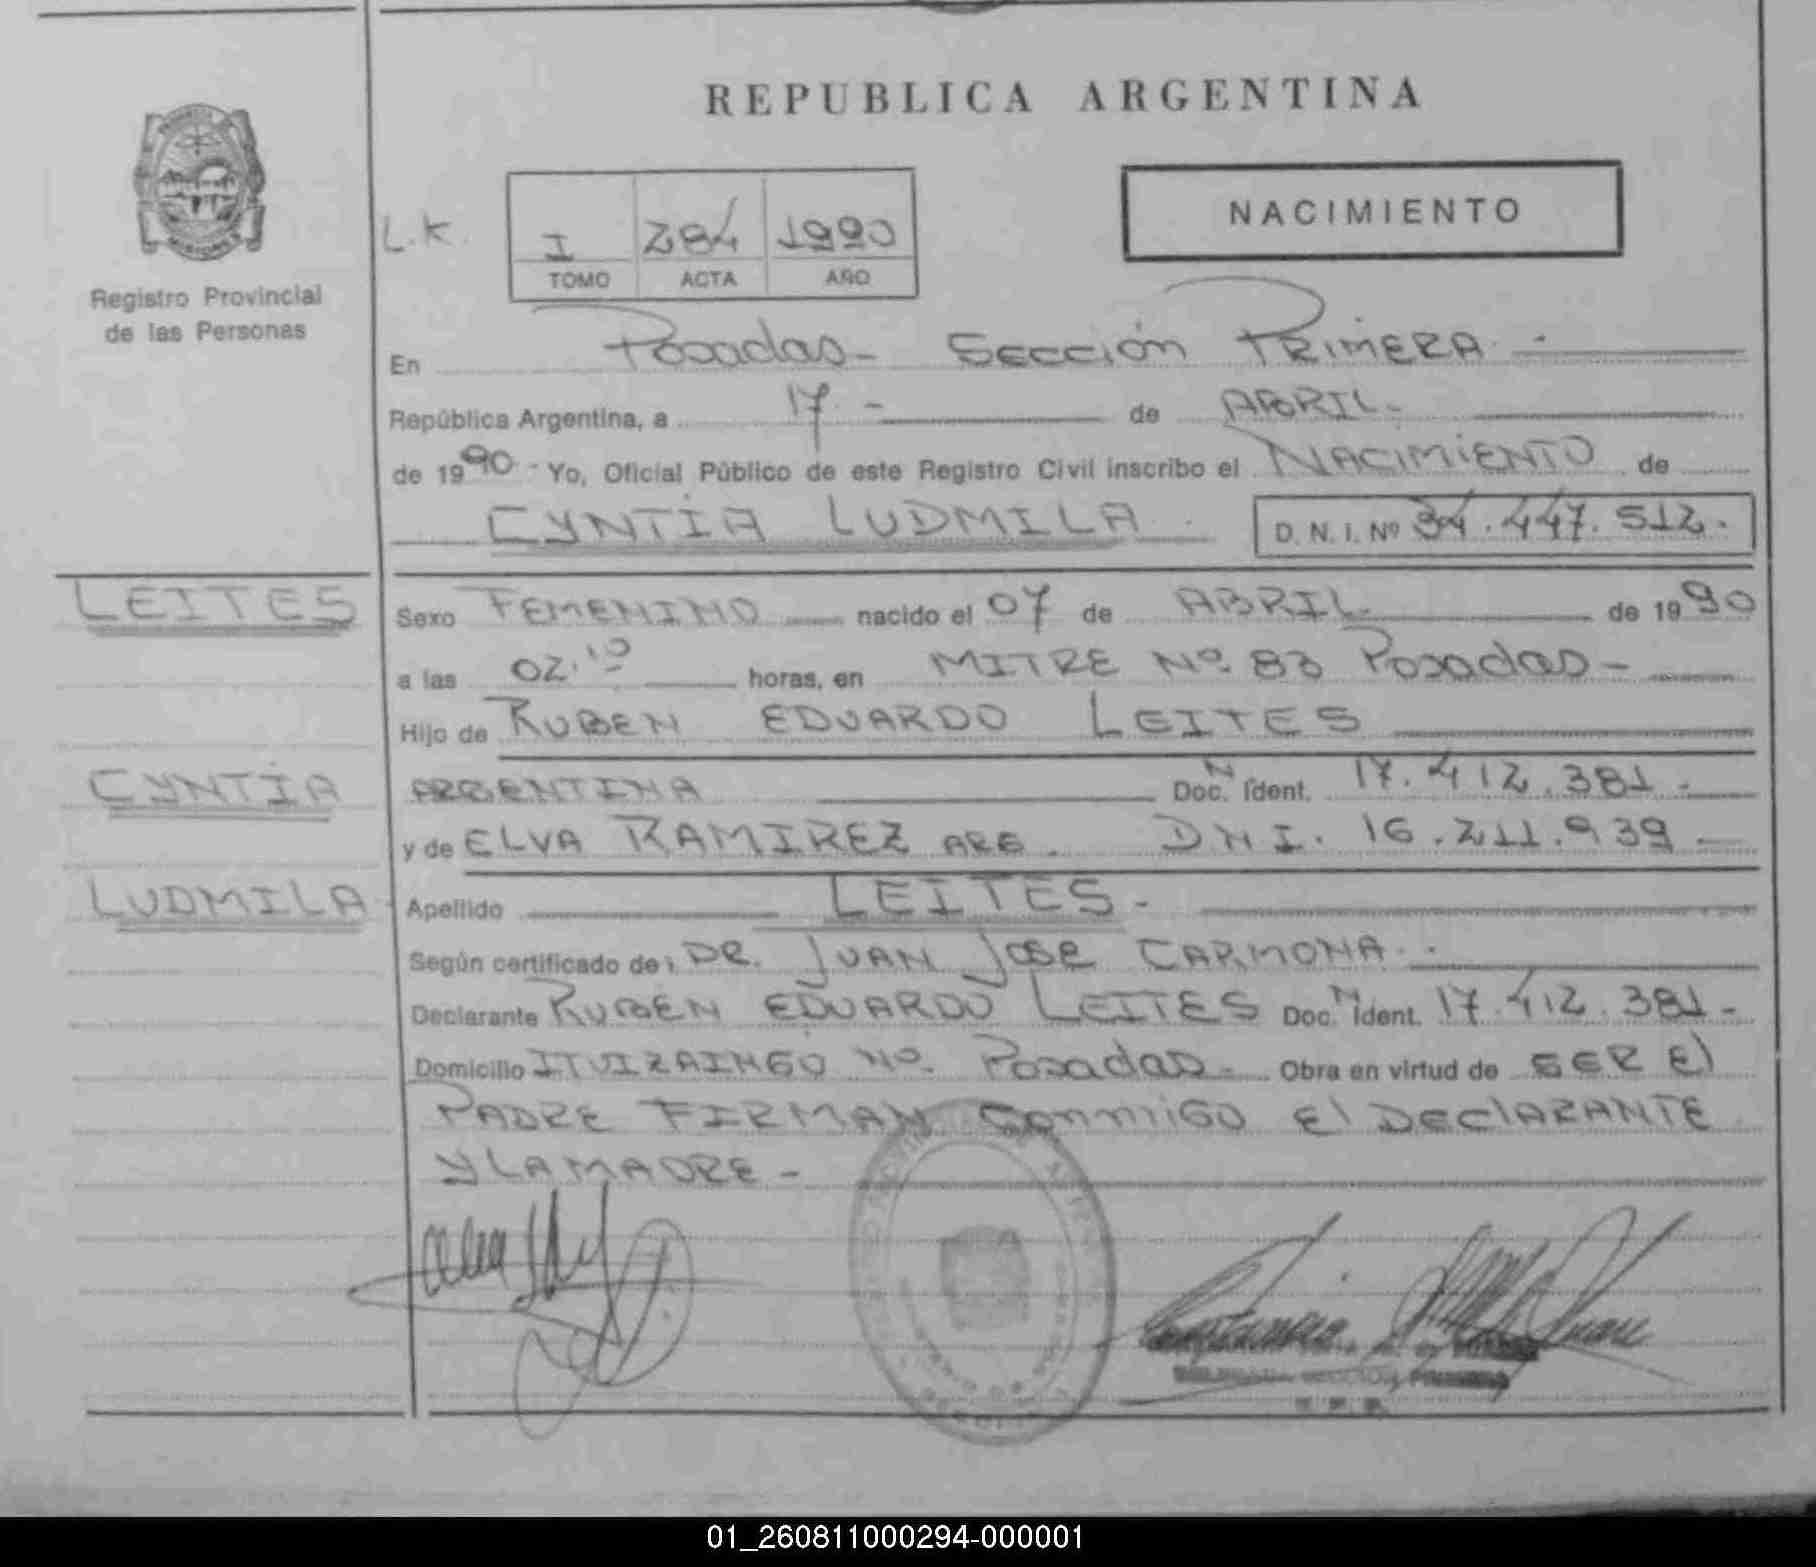 REPUBLICA ARGENTINA
NACIMIENTO
L.K.
I 284 1990
TOMO ACTA AÑO
Registro Provincial
de las Personas
En Posadas- Sección PRIMERA.-
República Argentina, a 17.- de ABRIL.-
de 1990- Yo, Oficial Público de este Registro Civil inscribo el NACIMIENTO de
CYNTIA LUDMILA D. N. I. Nº 34.447.512.
LEITES
Sexo FEMENINO nacido el 07 de ABRIL de 1990
a las 02.10 horas, en MITRE Nº 83 Posadas-
Hijo de RUBEN EDUARDO LEITES
CYNTIA
ARGENTINA Doc. N Ident. 17.412.381.-
y de ELVA RAMIREZ ARG. DNI. 16.211.939-
LUDMILA
Apellido LEITES.-
Según certificado de: DR. JUAN JOSE CARMONA.-
Declarante RUBEN EDUARDO LEITES Doc. N Ident. 17.412.381-
Domicilio ITUIZAINGO Nº Posadas- Obra en virtud de SER El
PADRE FIRMAN CONMIGO El DEClARANTE
Y LA MADRE-
01_260811000294-000001